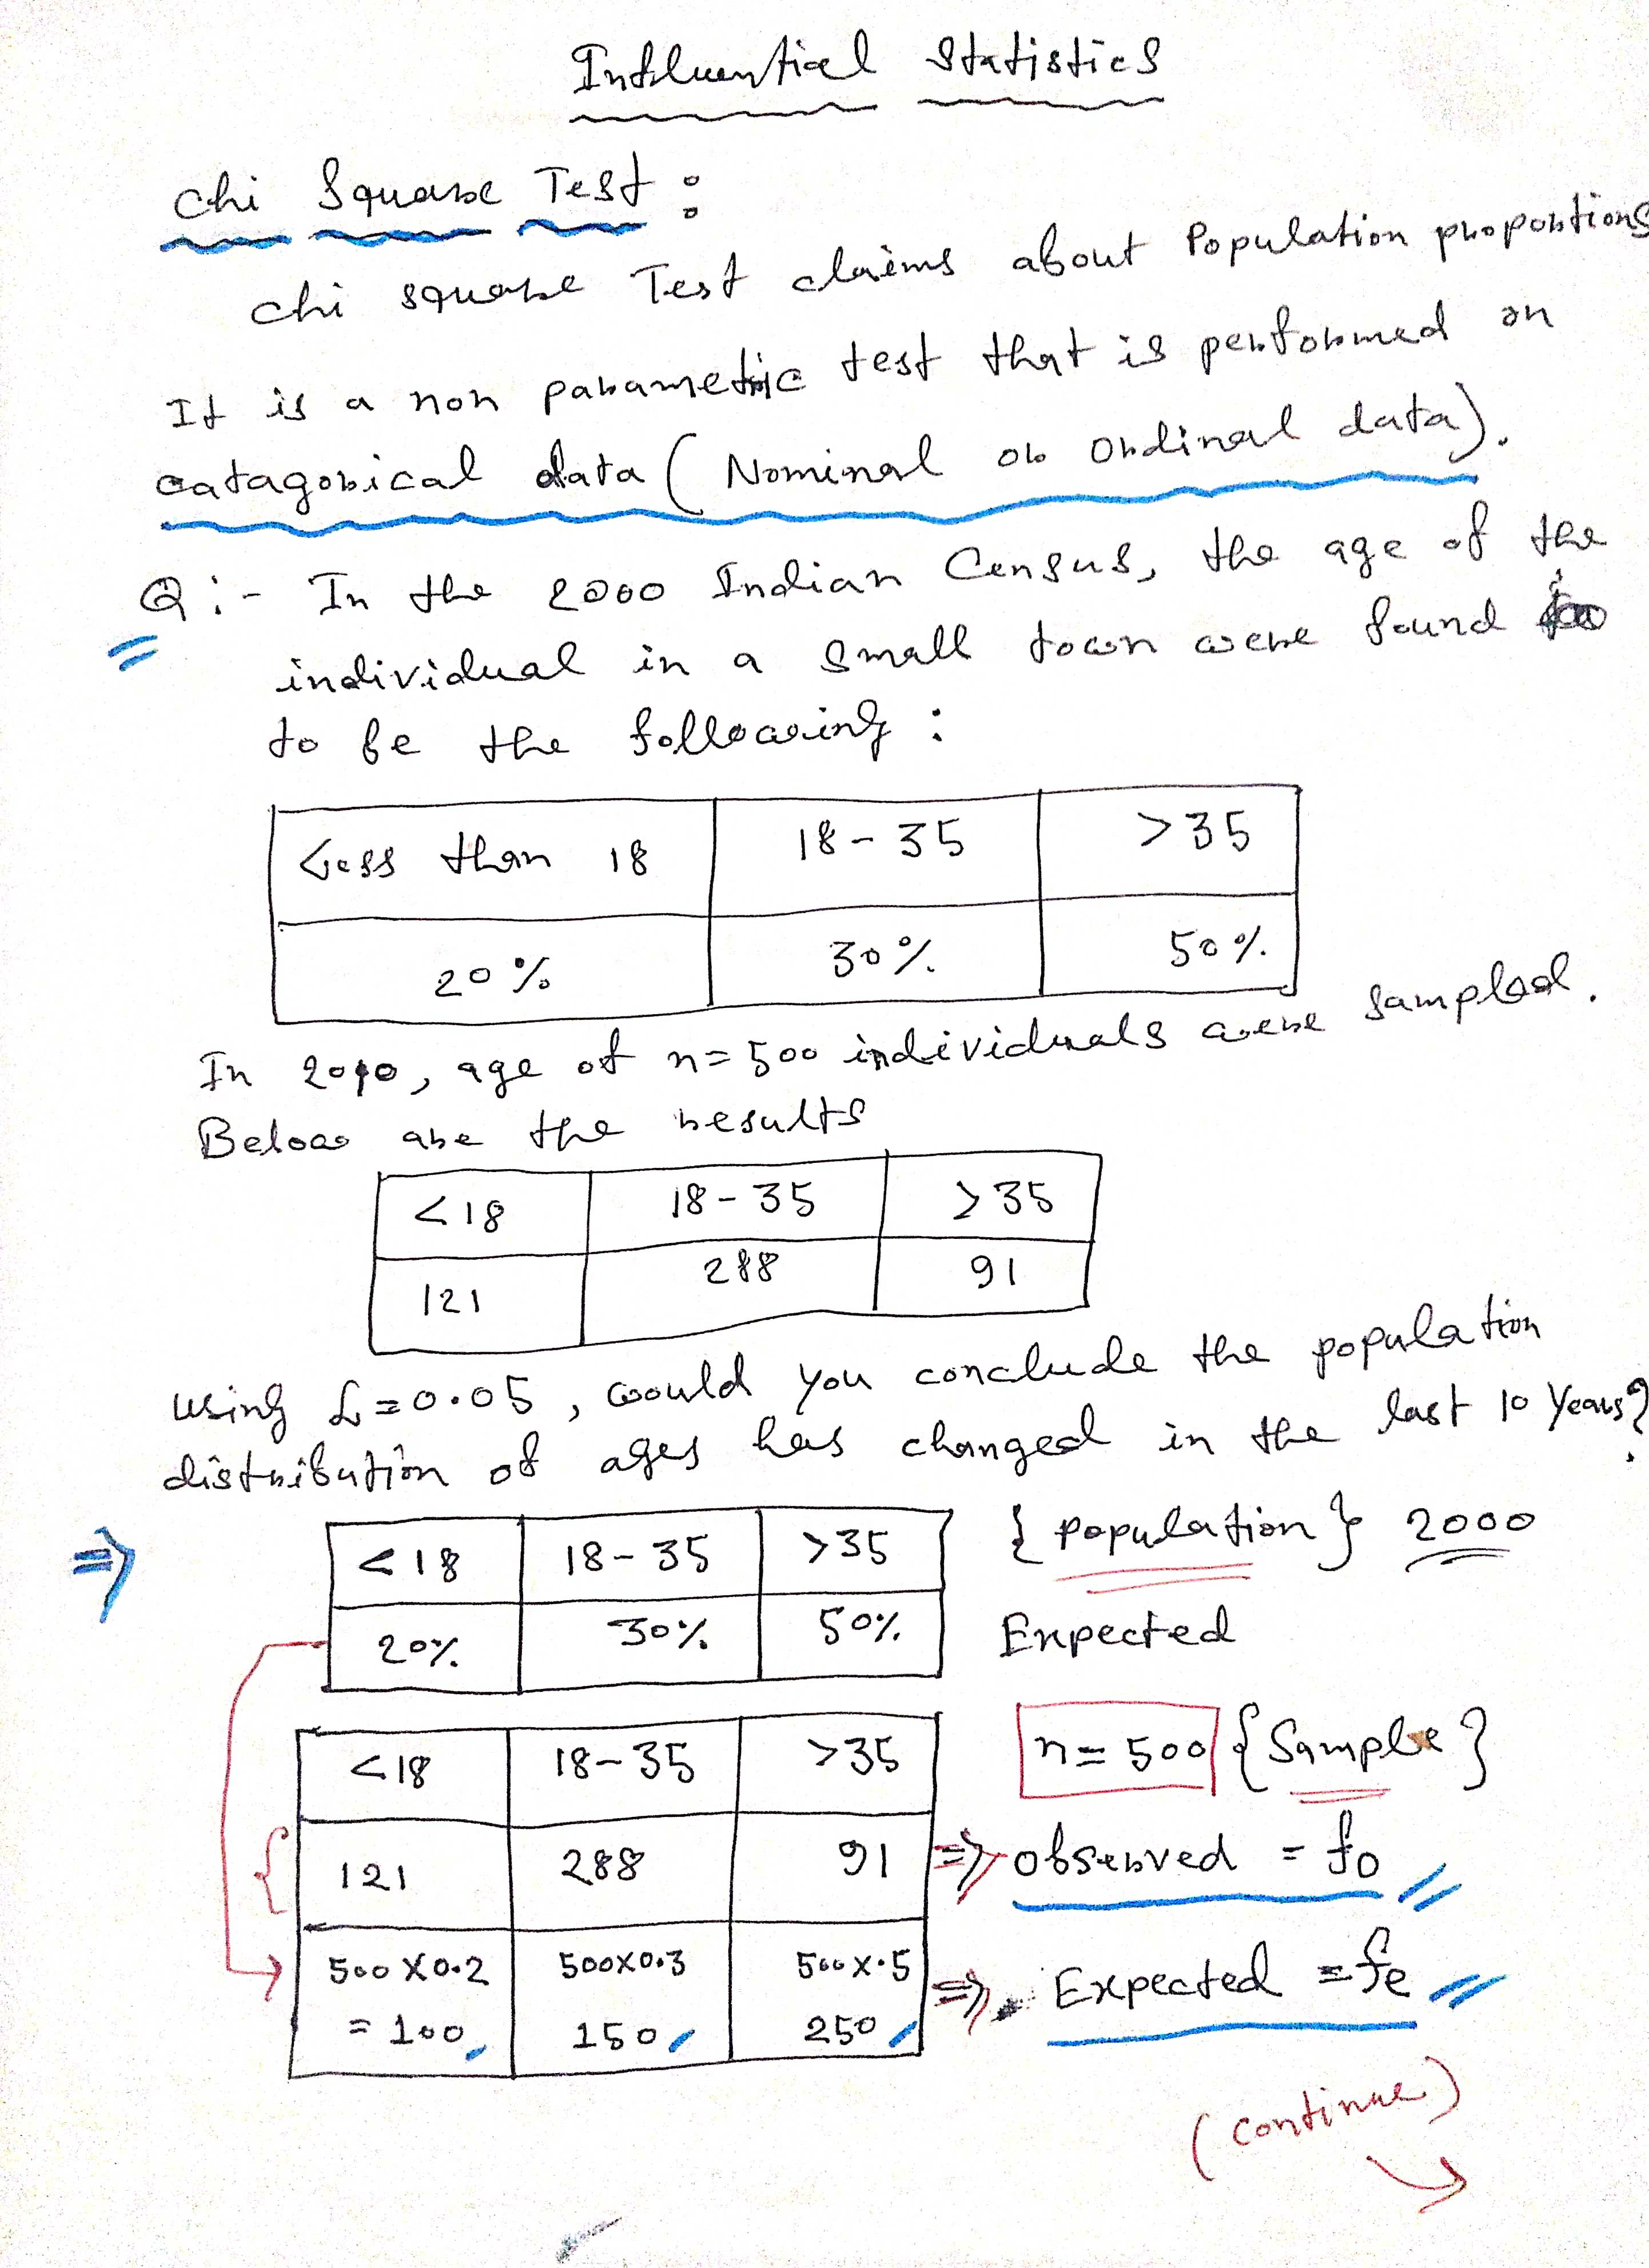 Influential Statistics
Chi Square Test :
Chi square Test claims about Population proportions
It is a non parametric test that is performed on
catagorical data ( Nominal or Ordinal data).
Q :- In the 2000 Indian Census, the age of the
individual in a small town were found
to be the following :
Less than 18 18-35 >35
20% 30% 50%
In 2010, age of n=500 individuals were sampled.
Below are the results
<18 18-35 >35
121 288 91
using α=0.05, would you conclude the population
distribution of ages has changed in the last 10 Years?
⇒ <18 18-35 >35 {population} 2000
20% 30% 50% Expected
<18 18-35 >35 n=500 {Sample}
121 288 91 ⇒ observed = fo
500 X 0.2 500X0.3 500X.5 ⇒ Expected = fe
= 100 150 250
(continue)